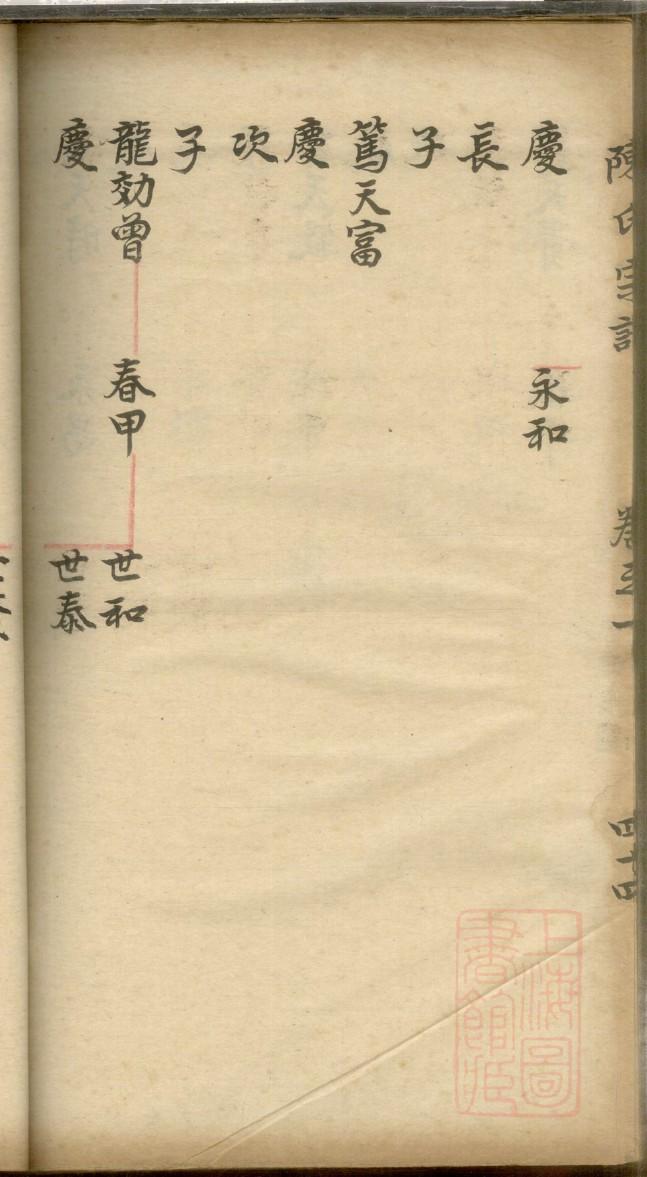 陳氏宗譜 卷之一 四十四
慶 永和
長
子
篤天富
慶
次
子
龍効曾 春甲 世和
慶 世泰
上海圖
書館藏